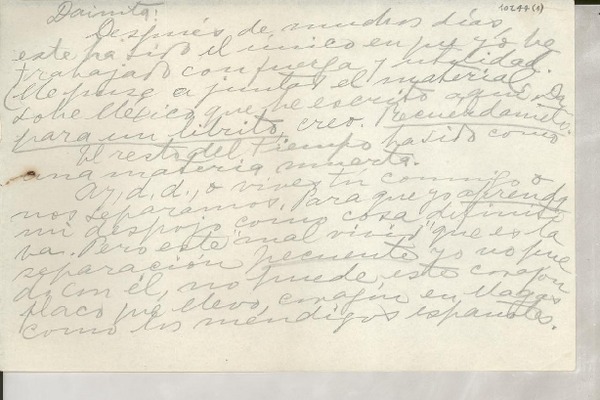 10244(1)
Dainita:
Después de muchos días,
este ha sido el único en que yo he
trabajado con fuerza y utilidad.
Me puse a juntar el material
sobre México que he escrito aquí. Da
para un librito, creo. Recuérdamelo.
El resto del tiempo ha sido como
una materia muerta.
Ay, d. d., o vives tú conmigo o
nos separamos. Para que yo aprenda
mi despojo como cosa definiti
va. Pero este "mal vivir" que es la
separación frecuente yo no pue
do con él, no puede este corazón
flaco que llevo, corazón en llagas
como los mendigos españoles.